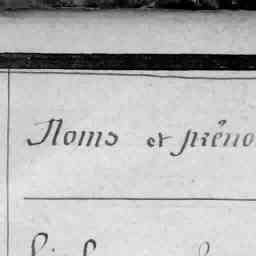 Noms et préno